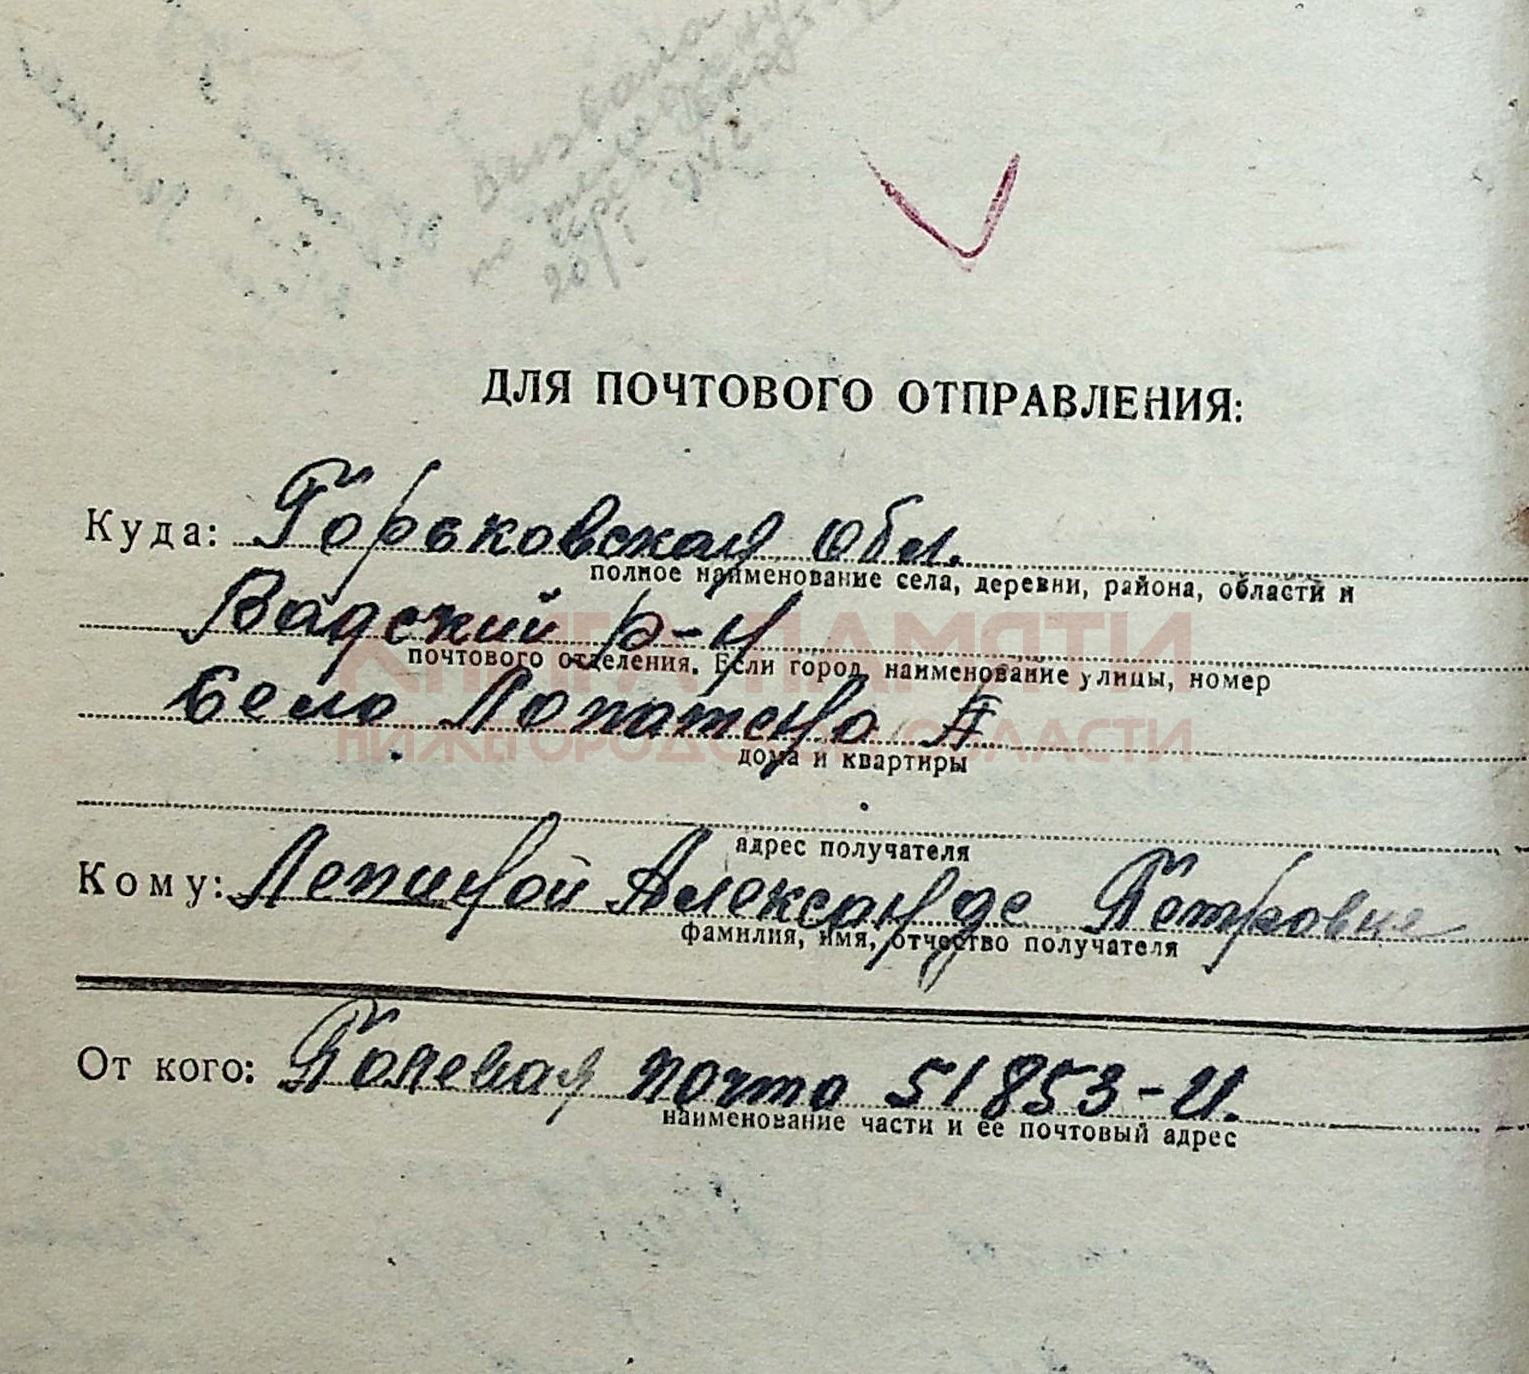 Вызвана
по телеграму
через
20/I 1942
ДЛЯ ПОЧТОВОГО ОТПРАВЛЕНИЯ:
Куда: Горьковская обл.
полное наименование села, деревни, района, области и
Вадский р-н
почтового отделения. Если город, наименование улицы, номер
КНИГА ПАМЯТИ
Село Лопатено
НИЖЕГОРОДСКОЙ ОБЛАСТИ
дома и квартиры
адрес получателя
Кому: Лепиной Александре Петровне
фамилия, имя, отчество получателя
От кого: Полевая почта 51853-И.
наименование части и ее почтовый адрес